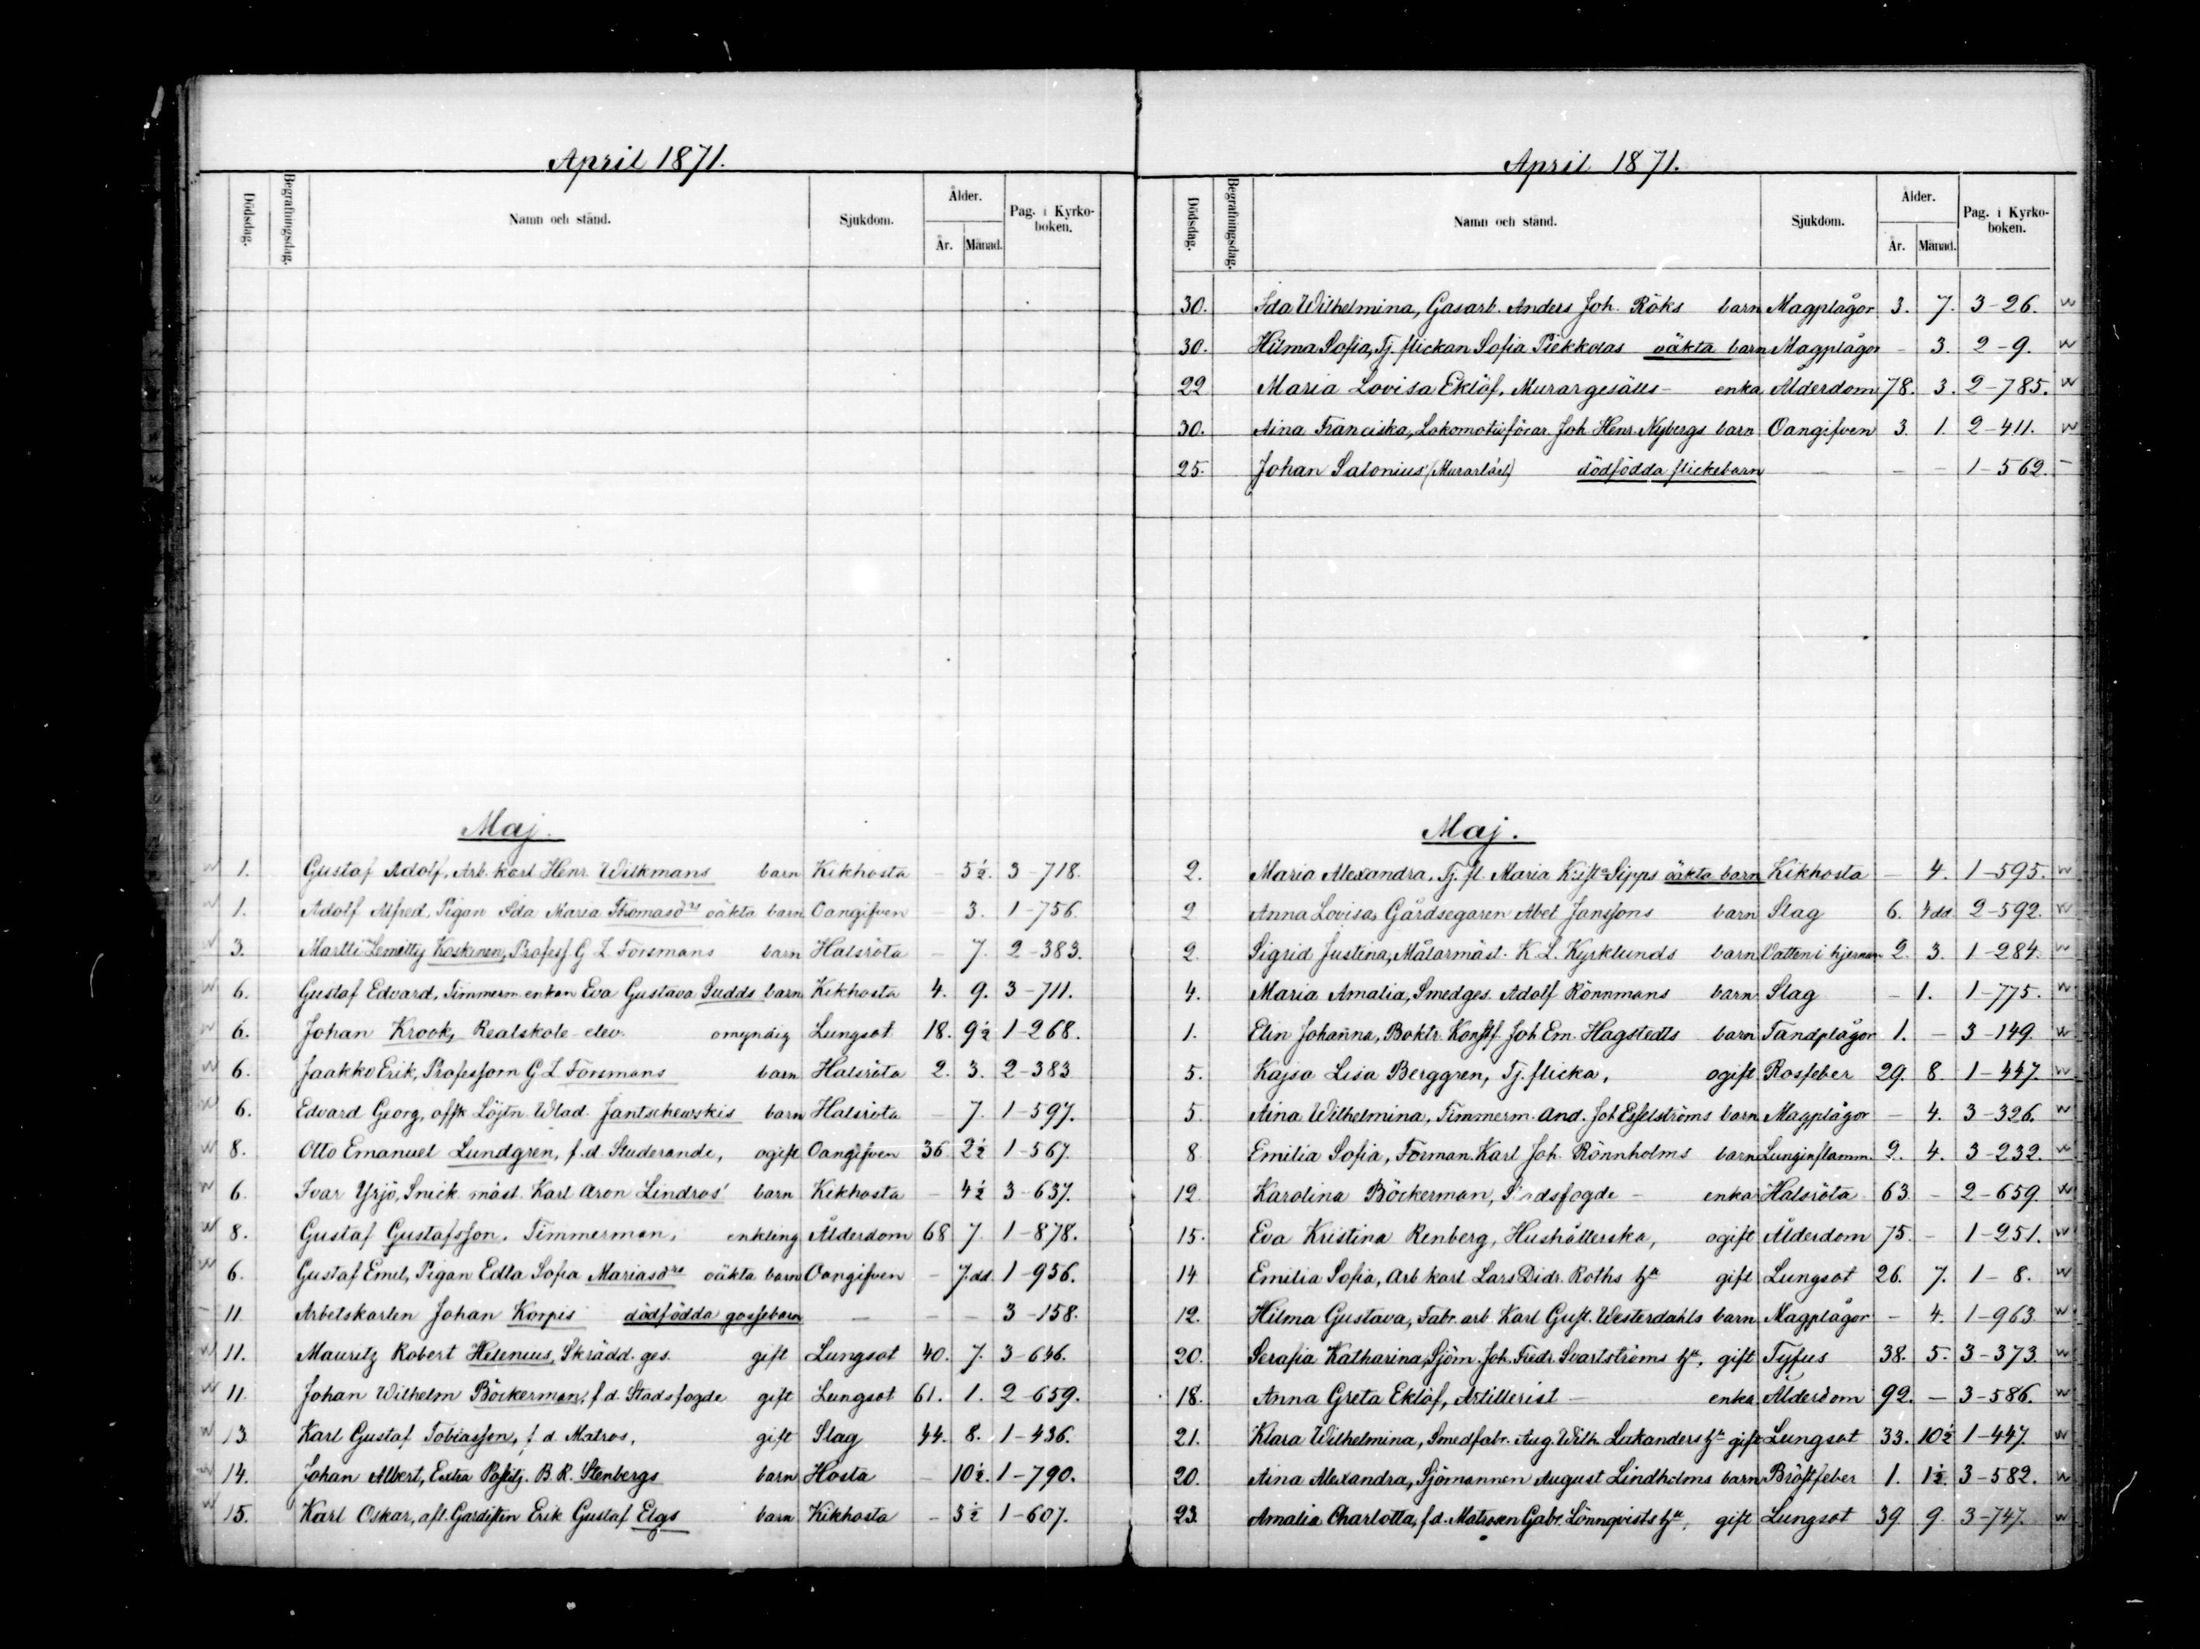 April 1871.
Dödsdag. Begrafningsdag. Namn och stånd. Sjukdom. Ålder. År. Månad. Pag. i Kyrko-boken.
Maj.
1. Gustaf Adolf, Arb. karl Henr. Wilkmans barn Kikhosta – 5½. 3–718.
1. Adolf Alfred, Pigan Ida Maria Thomasdrs oäkta barn Oangifven – 3. 1–756.
3. Martti Lemitty Koskinen, Profess. G Z Forsmans barn Halsröta – 7. 2–383.
6. Gustaf Edvard, Timmerm. enkan Eva Gustava Sudds barn Kikhosta 4. 9. 3–711.
6. Johan Krook, Realskole-elev. omyndig Lungsot 18. 9½ 1–268.
6. Jaakko Erik, Professorn G Z Forsmans barn Halsröta 2. 3. 2–383
6. Edvard Georg, affsk Löjtn. Wlad. Jantschewskis barn Halsröta – 7. 1–597.
8. Otto Emanuel Lundgren, f.d. Studerande, ogift Oangifven 36 2½ 1–567.
6. Ivar Yrjö, Snick. mäst. Karl Aron Lindros' barn Kikhosta – 4½ 3–637.
8. Gustaf Gustafsson, Timmerman, enkling Ålderdom 68 7. 1–878.
6. Gustaf Emil, Pigan Edla Sofia Mariasdrs oäkta barn Oangifven – 7.dd. 1–956.
11. Arbetskarlen Johan Korpis dödfödda gossebarn — – – 3–158.
11. Mauritz Robert Helenius, Skrädd. ges. gift Lungsot 40. 7. 3–646.
11. Johan Wilhelm Böckerman, f.d. Stadsfogde gift Lungsot 61. 1. 2–659.
13. Karl Gustaf Tobiasson, f.d. Matros, gift Slag 44. 8. 1–436.
14. Johan Albert, Extra Postilj. B. R. Stenbergs barn Hosta – 10½. 1–790.
15. Karl Oskar, afl. Gardisten Erik Gustaf Elgs barn Kikhosta – 3½ 1–607.
April 1871.
Dödsdag. Begrafningsdag. Namn och stånd. Sjukdom. Ålder. År. Månad. Pag. i Kyrko-boken.
30. Ida Wilhelmina, Gasarb. Anders Joh. Röks barn Magplågor 3. 7. 3–26.
30. Hilma Sofia, Tj. flickan Sofia Piekkolas oäkta barn Magplågor – 3. 2–9.
22 Maria Lovisa Eklöf, Murargesälls– enka Ålderdom 78. 3. 2–785.
30. Aina Franciska, Lokomotivförar. Joh. Henr. Nybergs barn Oangifven 3. 1. 2–411.
25. Johan Salonius' (Murarlärl) dödfödda flickebarn — – – 1–562.
Maj.
2. Maria Alexandra, Tj. fl. Maria Sipps oäkta barn Kikhosta – 4. 1–595.
2 Anna Lovisa, Gårdsegaren Abel Janssons barn Slag 6. 4dd 2–592.
2. Sigrid Justina, Målarmäst. K L. Kyrklunds barn Vatten i hjernan 2. 3. 1–284.
4. Maria Amalia, Smedges. Adolf Rönnmans barn Slag – 1. 1–775.
1. Elin Johanna, Boktr. Konstf. Joh Em. Hagstedts barn Tandplågor 1. – 3–149.
5. Kajsa Lisa Berggren, Tj. flicka, ogift Rosfeber 29. 8. 1–447.
5. Aina Wilhelmina, Timmerm. And. Joh Esselströms barn Magplågor – 4. 3–326.
8 Emilia Sofia, Forman. Karl Joh. Rönnholms barn Lunginflamm. 2. 4. 3–232.
12. Karolina Böckerman, Stadsfogde – enka Halsröta 63. – 2–659.
15. Eva Kristina Renberg, Hushållerska, ogift Ålderdom 75. – 1–251.
14 Emilia Sofia, Arb. karl Lars Didr. Roths hu gift Lungsot 26. 7. 1–8.
12. Hilma Gustava, Fabr. arb. Karl Gust. Westerdahls barn Magplågor – 4. 1–963.
20. Serafia Katharina, Sjöm. Joh. Fredr. Svartströms hu, gift Tyfus 38. 5. 3–373.
18. Anna Greta Eklöf, Artillerist – enka Ålderdom 92. – 3–586.
21. Klara Wilhelmina, Smedfabr. Aug. Wilh. Lukanders hu gift Lungsot 33. 10½ 1–447.
20. Aina Alexandra, Sjömannen August Lindholms barn Bröstfeber 1. 1½ 3–582.
23. Amalia Charlotta, f.d. Matrosen Gabr. Lönnqvists hu, gift Lungsot 39. 9. 3–747.